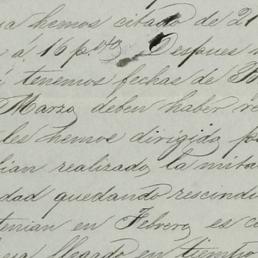 ya hemos citado de 21
á 16 p. Despues
tenemos fechas de
Marzo deben haber re
les hemos dirigido p
ian realizado la mita
dad quedando rescindi
tenian en Febrero es c
ya llegado en tiempo